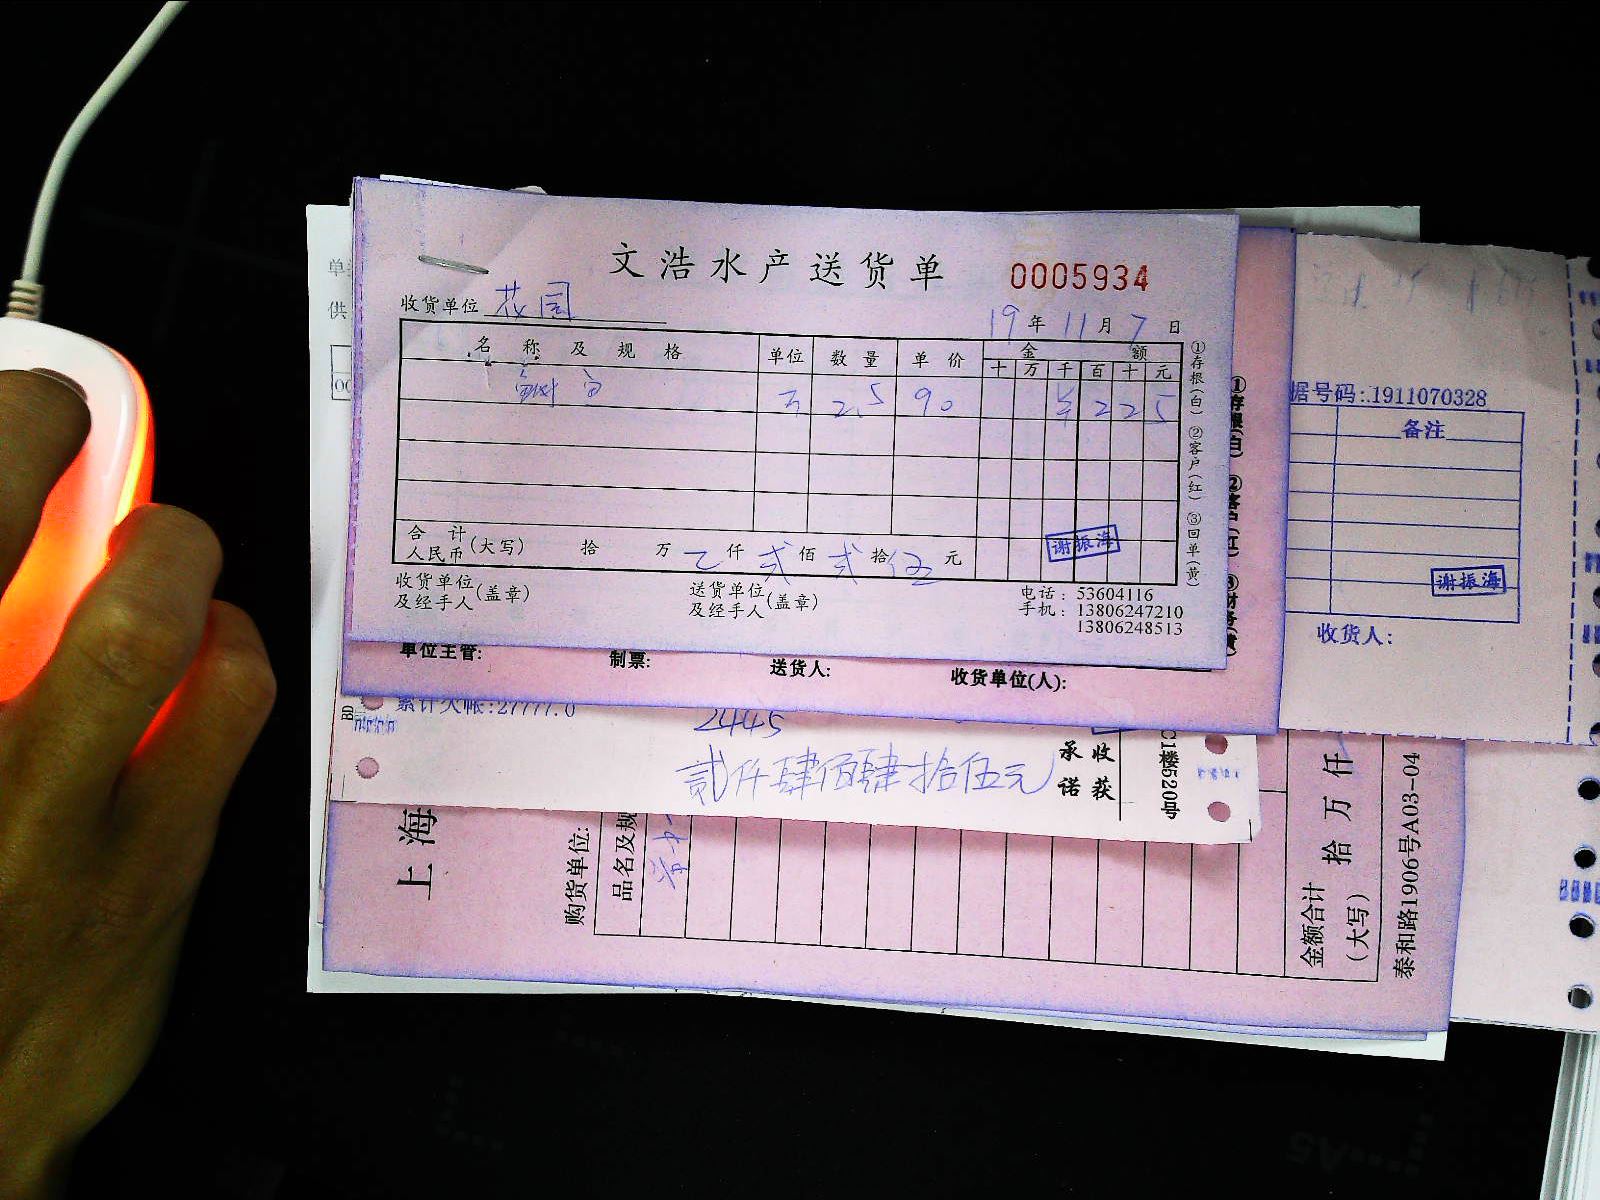 文浩水产送货单 0005934
收货单位 花园 19年11月7日
名称及规格 单位 数量 单价 金额
十 万 千 百 十 元
2.5 90 ¥ 2 2 5
合计
人民币(大写) 拾 万 乙仟贰佰贰拾伍元
谢振海
收货单位及经手人(盖章) 送货单位及经手人(盖章)
电话:53604116
手机:13806247210
13806248513
①存根(白) ②客户(红) ③回单(黄)
单位主管: 制票: 送货人: 收货单位(人):
①存根(白) ②客户(红) ③财务(黄)
据号码:1911070328
备注
谢振海
收货人:
累计欠帐:27777.0
2445
贰仟肆佰肆拾伍元
承诺 收获
C1楼520号
BD
上海
购货单位:
品名及规
金额合计(大写) 拾万仟
泰和路1906号A03-04
单
供
00